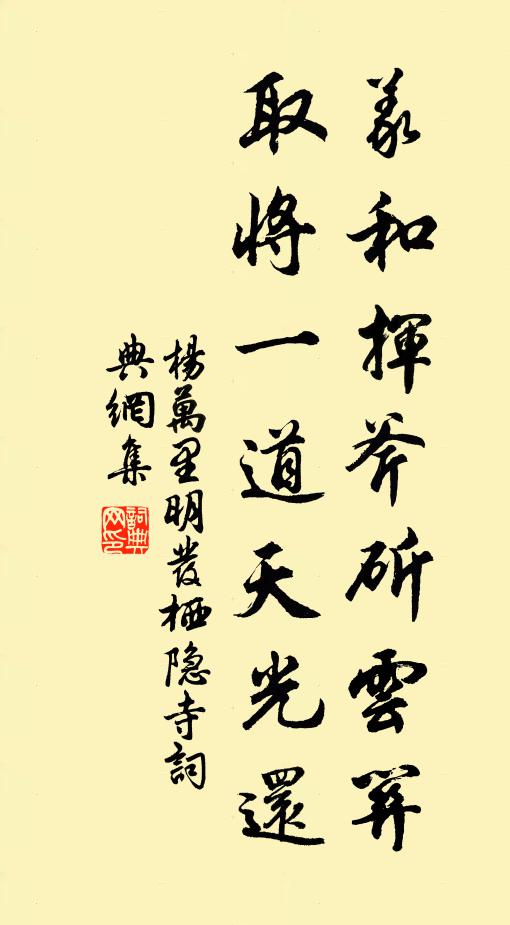 羲和揮斧斫雲開
取將一道天光還
楊萬里明發栖隐寺詞
典網集
詞典
网印